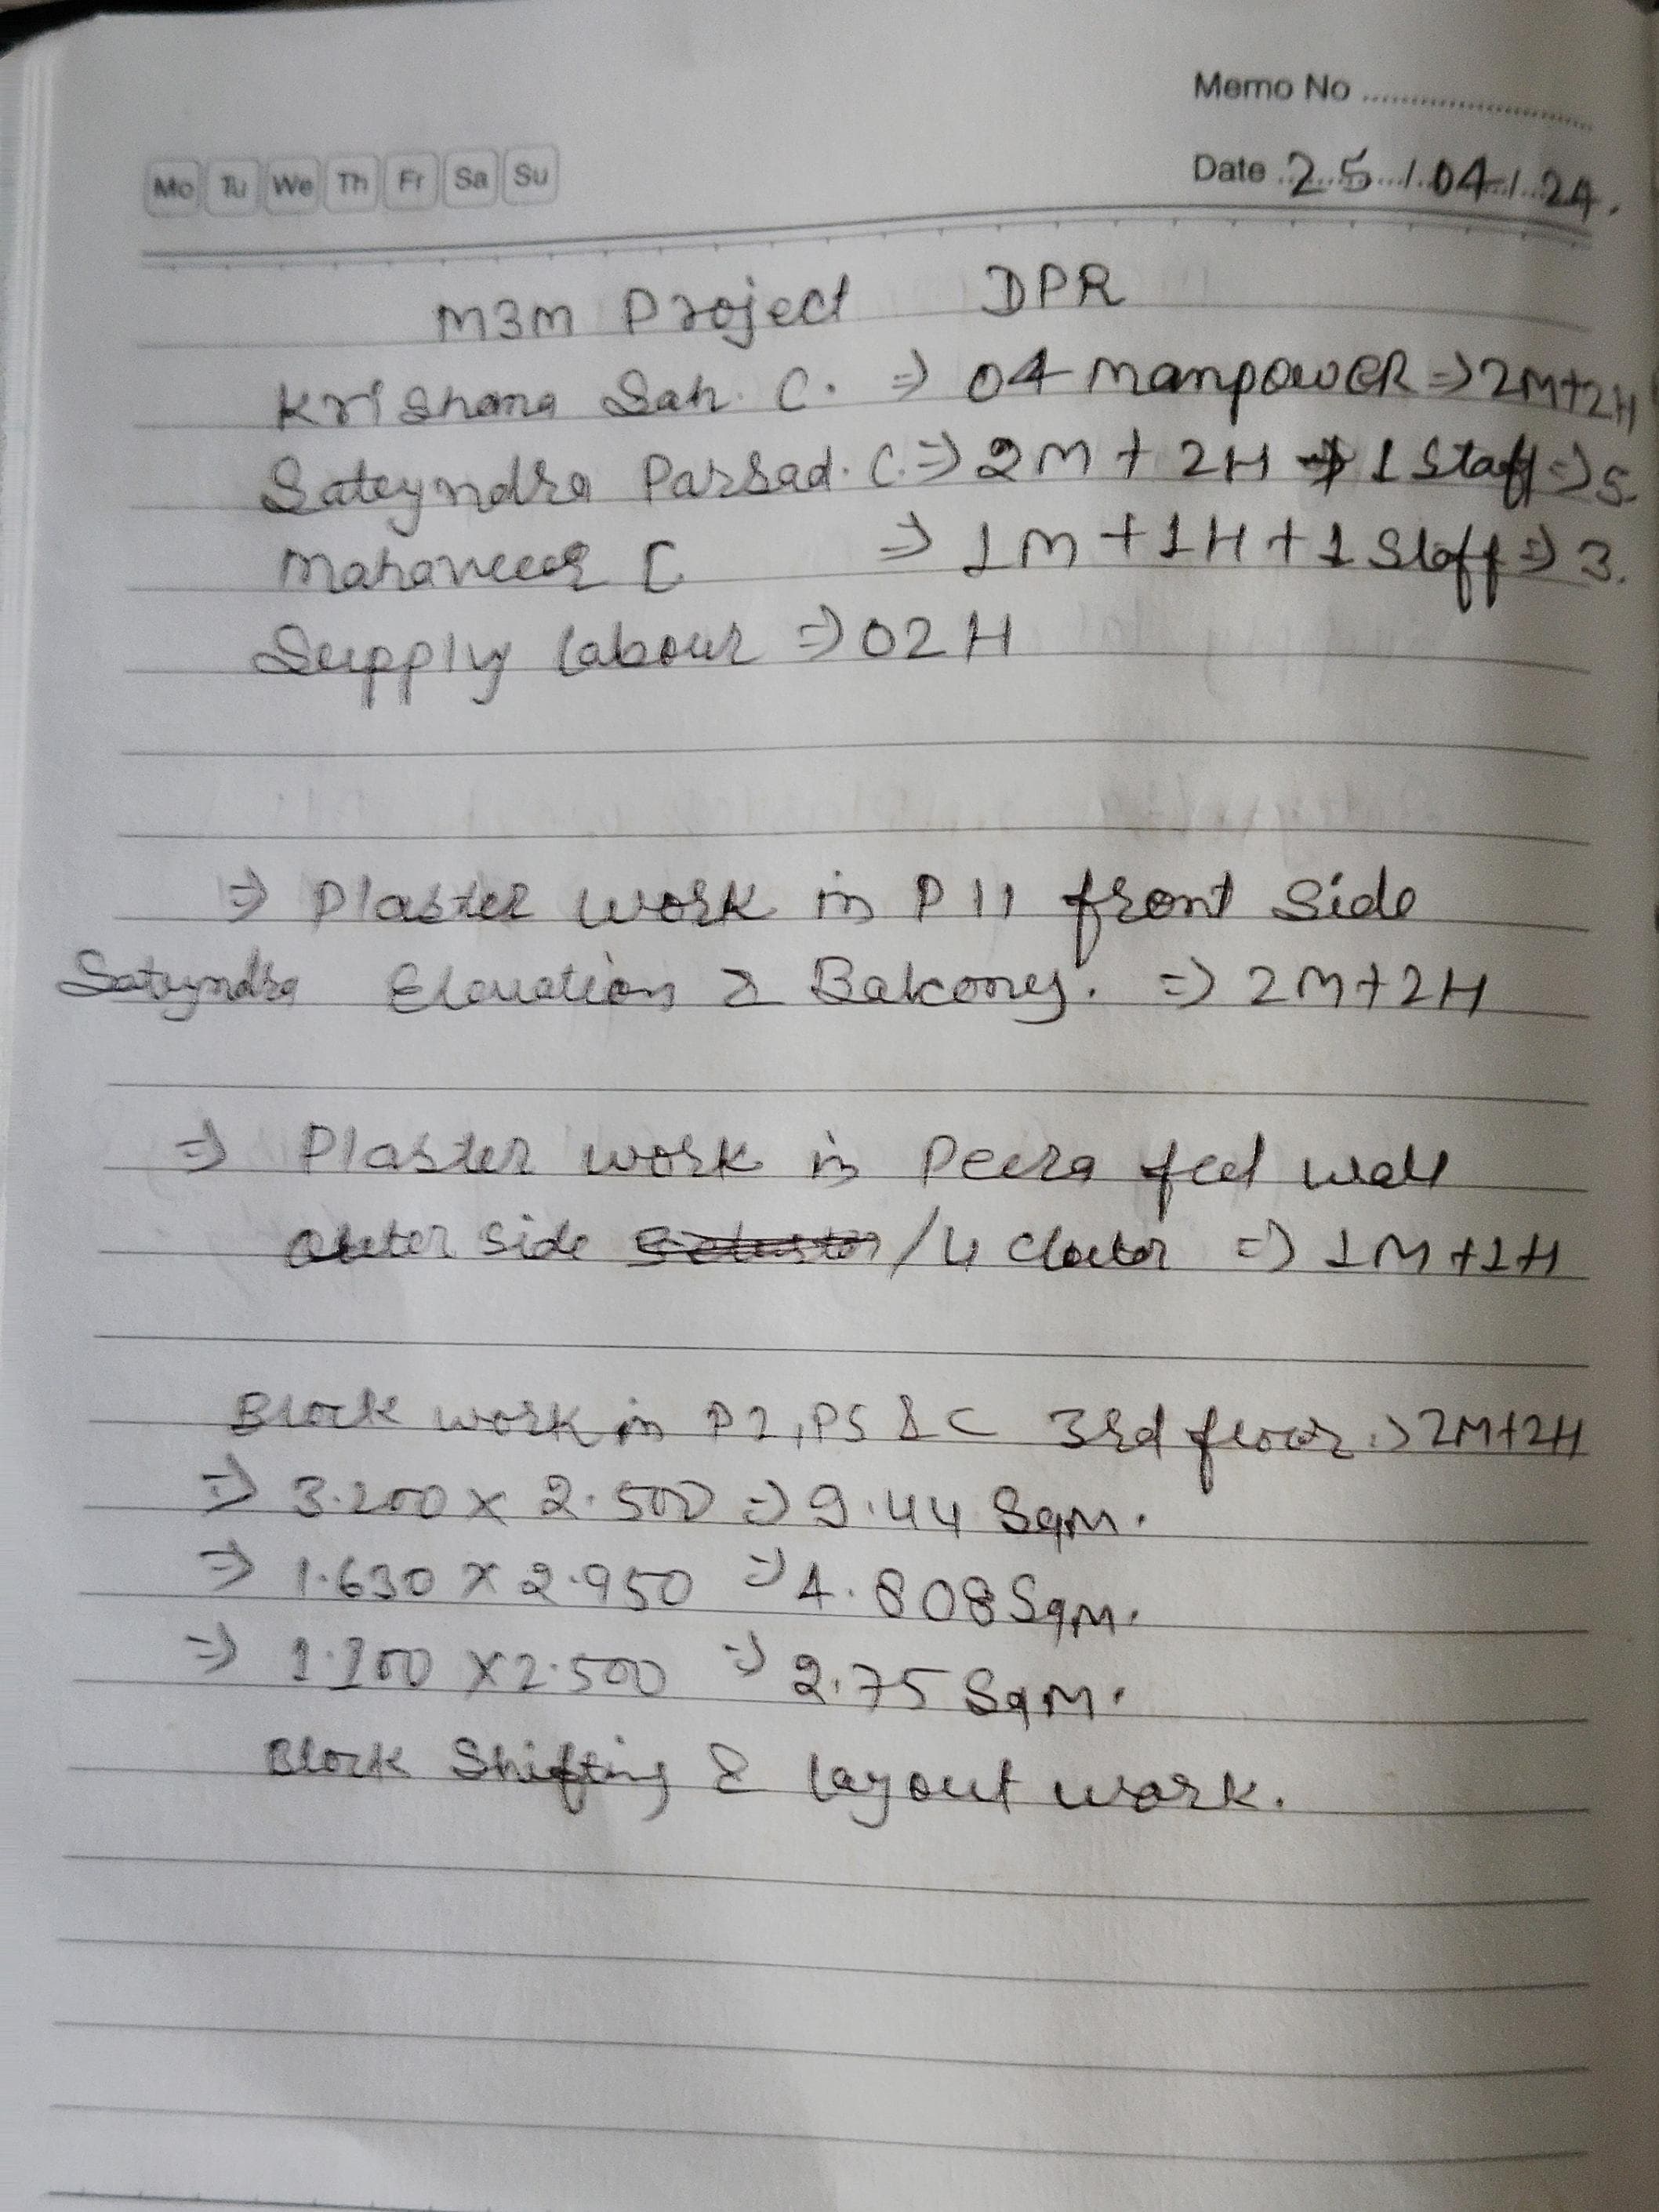 Memo No
Mo Tu We Th Fr Sa Su
Date 25/04/24.
M3M Project DPR
Krishana Sah. C. => 04 manpowER => 2M+2H
Sateyndra Parsad. C. => 2M + 2H + 1 Staff => 5.
Mahaveer C => 1M + 1H + 1 Staff => 3.
Supply labour => 02 H
=> Plaster work in P11 front Side
Sateyndra Elevation & Balcony. => 2M+2H
=> Plaster work in Peera feet wall
outer side / 4 => 1M+1H
Block work in P2, P5 & C 3rd floor => 2M+2H
=> 3.200 x 2.500 => 9.44 Sqm.
=> 1.630 x 2.950 => 4.808 Sqm.
=> 1.100 x 2.500 => 2.75 Sqm.
Block Shifting & layout work.